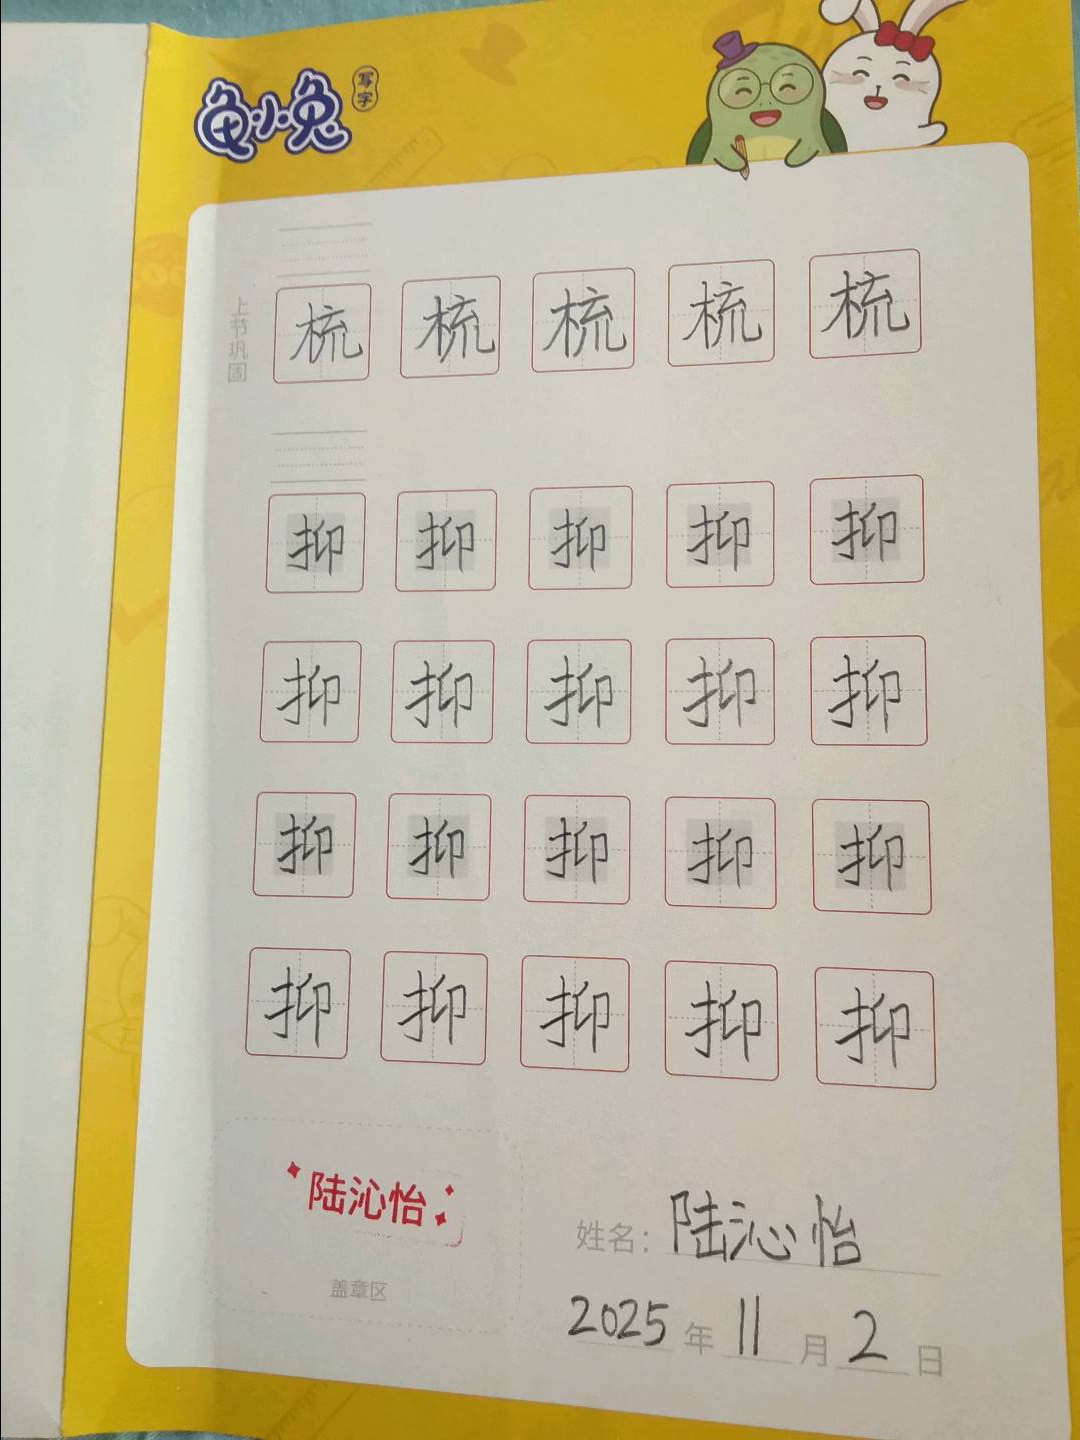 龟小兔
写字
上节巩固
梳 梳 梳 梳 梳
抑 抑 抑 抑 抑
抑 抑 抑 抑 抑
抑 抑 抑 抑 抑
抑 抑 抑 抑 抑
陆沁怡
盖章区
姓名：陆沁怡
2025年11月2日